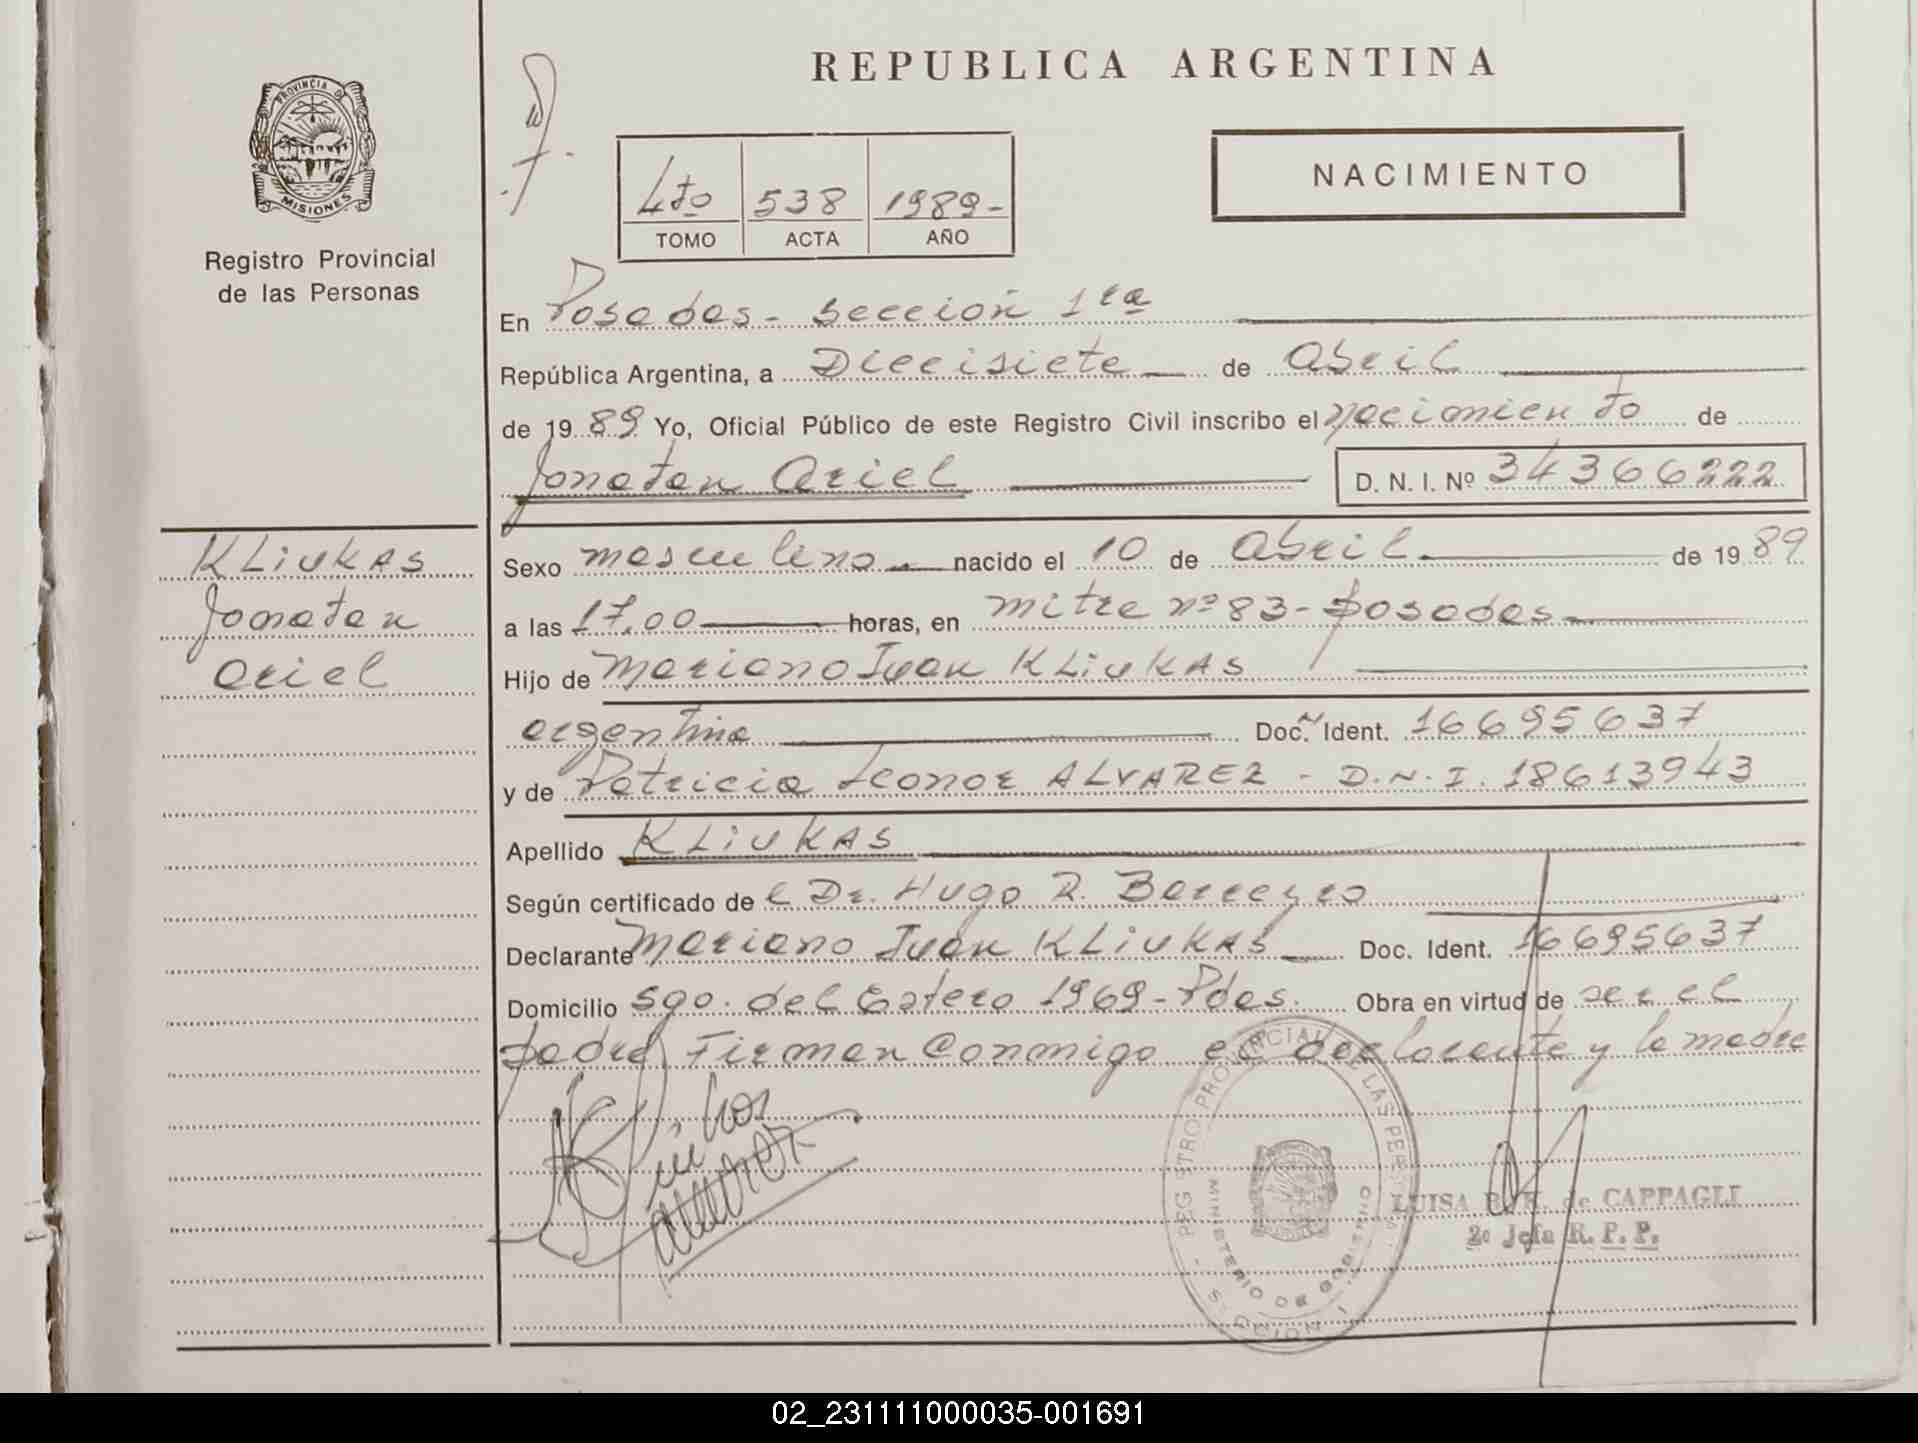 REPUBLICA ARGENTINA
PROVINCIA DE
MISIONES
Registro Provincial
de las Personas
4to 538 1989-
TOMO ACTA AÑO
NACIMIENTO
En Posadas - Sección 1ra
República Argentina, a Diecisiete de Abril
de 1989 Yo, Oficial Público de este Registro Civil inscribo el nacimiento de
Jonatan Ariel D. N. I. Nº 34366222
KLiukAS
Jonatan
Ariel
Sexo masculino nacido el 10 de Abril de 1989
a las 17,00 horas, en mitre nº 83 - Posadas
Hijo de Mariano Juan KLiukAS
argentina Doc. Ident. 16695637
y de Patricia Leonor ALVAREZ - D.N.I. 18613943
Apellido KLiuKAS
Según certificado de l Dr. Hugo R. Barreyro
Declarante Mariano Juan KLiukAS Doc. Ident. 16695637
Domicilio Sgo. del Estero 1969 - Pdas. Obra en virtud de ser el
padre Firman Conmigo el declarante y la madre
REGISTRO PROVINCIAL DE LAS PERSONAS
MINISTERIO DE GOBIERNO
SECCION 1
LUISA de CAPPAGLI
2º Jefa R. P. P.
02_231111000035-001691